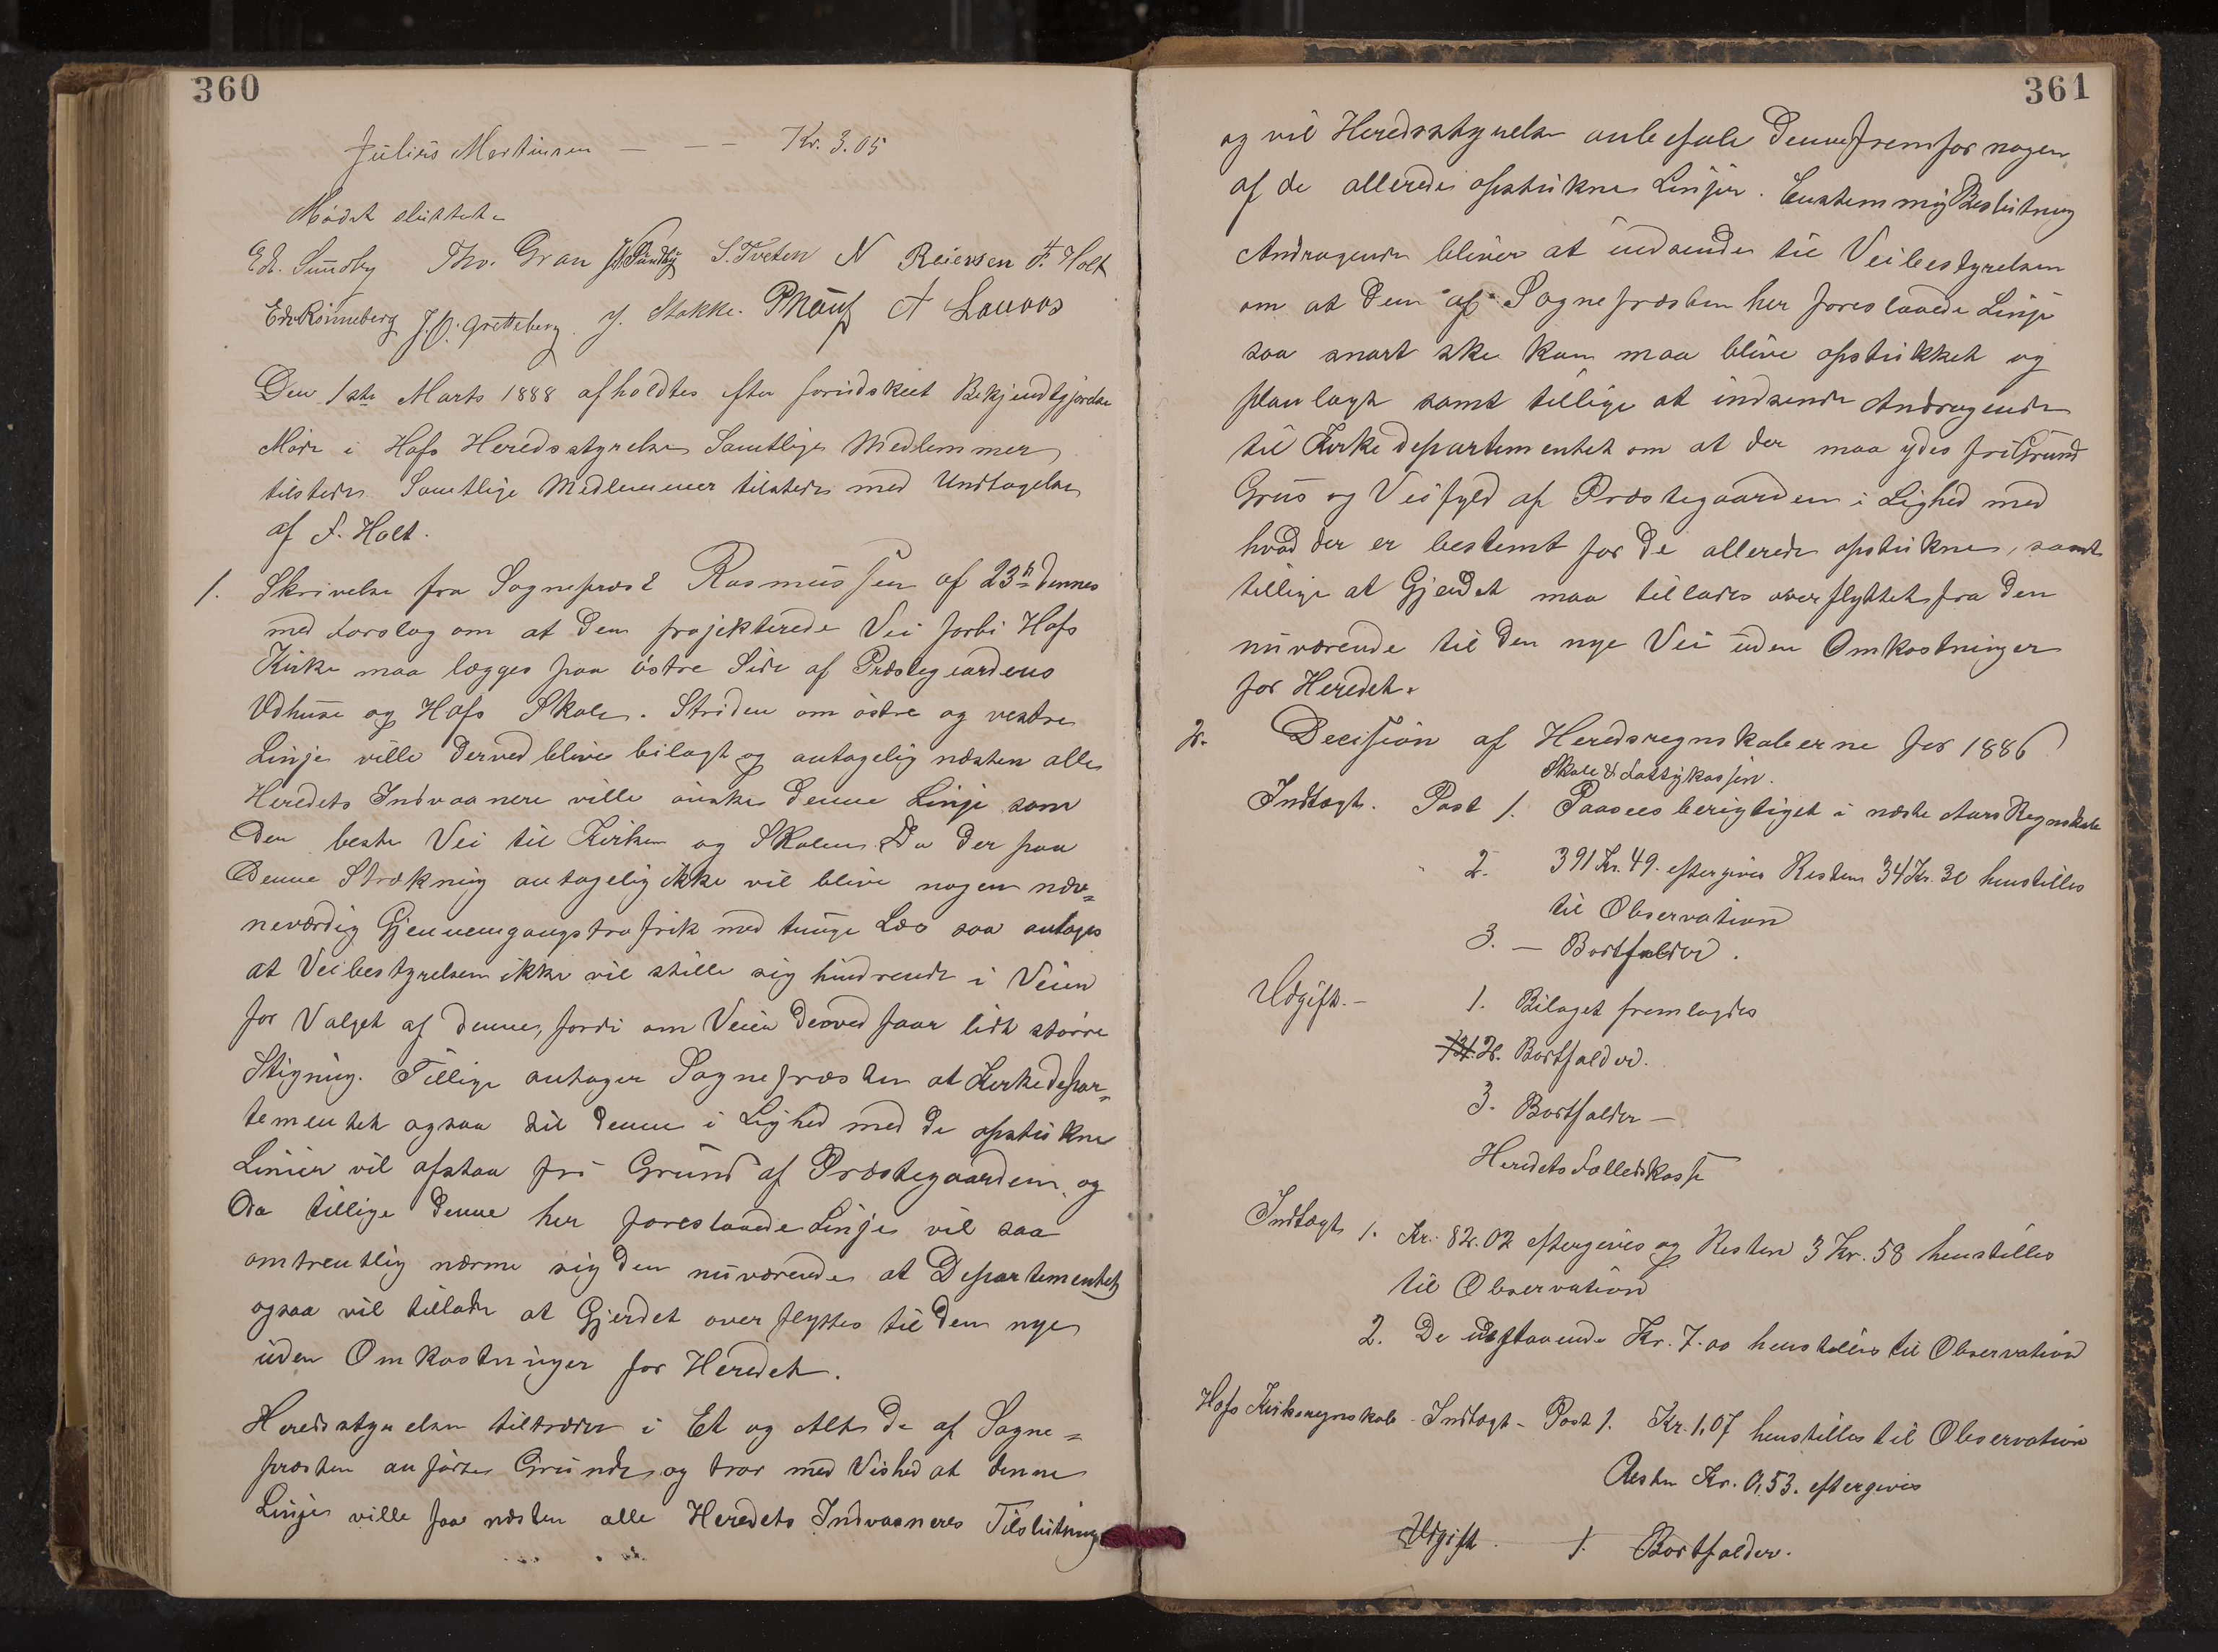 360
Julius Martinsen — — — Kr. 3.05
Mödet sluttet.
Edv. Sundby Tho. Gran S. Tveten N Reiersen F. Holt
Edv Rönneberg J. O. Gretteberg. J. Stokke. A Lauvos
Den 1ste Marts 1888 afholdtes efter forudskeet Bekjendtgjørelse
Møde i Hofs Heredsstyrelse Samtlige Medlemmer
tilstede Samtlige Medlemmer tilstede med Undtagelse
af F. Holt.
1. Skrivelse fra Sogneprest Rasmussen af 23de dennes
med Forslag om at den projekterede Vei forbi Hofs
Kirke maa lægges paa östre Side af Præstegaardens
Udhuse og Hofs Skole. Striden om östre og vestre
Linje ville derved blive bilagt og antagelig næsten alle
Heredets Indvaanere ville önske denne Linje som
den beste Vei til Kirken og Skolen. Da der paa
denne Strækning antagelig ikke vil blive nogen næv-
neværdig Gjennemgangstrafik med tunge Læs saa antages
at Veibestyrelsen ikke vil stille sig hindrende i Veien
for Valget af denne, fordi om Veien derved faar lidt större
Stigning. Tillige antager Sognepræsten at Kirkedepar-
tementet ogsaa til denne i Lighed med de opstukne
Linier vil afstaa fri Grund af Præstegaarden, og
da tillige denne her foreslaaede Linje vil saa
omtrentlig nærme sig den nuværende at Departementet
ogsaa vil tillade at Gjerdet overflyttes til den nye
uden Omkostninger for Heredet.
Heredsstyrelsen tiltræder i Et og Alt de af Sogne-
præsten anførte Grunde og tror med Vished at denne
Linje ville faa næsten alle Heredets Indvaaneres Tilslutning
361
og vil Heredsstyrelse anbefale denne fremfor nogen
af de allerede opstukne Linjer. Enstemmig Beslutning
Andragende bliver at indsende til Veibestyrelsen
om at den af Sognepræsten her foreslaaede Linje
saa snart ske kan maa blive opstukket og
planlagt samt tillige at indsende Andragende
til Kirkedepartementet om at der maa ydes fri Grund
Grus og Veifyld af Præstegaarden i Lighed med
hvad der er bestemt for de allerede opstukne, samt
tillige at Gjerdet maa tillades overflyttet fra den
nuværende til den nye Vei uden Omkostninger
for Heredet.
2. Decision af Heredsregnskaberne for 1886
Skole & Fattigkassen.
Indtægt. Post 1. Paasees berigtiget i næste Aars Regnskab
2. 391 Kr. 49. eftergives Resten 34 Kr. 30 henstilles
til Observation
3. — Bortfalder.
Udgift. — 1. Bilaget fremlagdes
2. Bortfalder.
3. Bortfalder —
Heredets Fælledskasse
Indtægt 1. Kr. 82.02 eftergives og Resten 3 Kr. 58 henstilles
til Observation
2. De udestaaende Kr. 7.00 henstilles til Observation
Hofs Kirkeregnskab - Indtægt - Post 1. Kr. 1,07 henstilles til Observation
Resten Kr. 0,53. eftergives
Udgift. 1. Bortfalder.